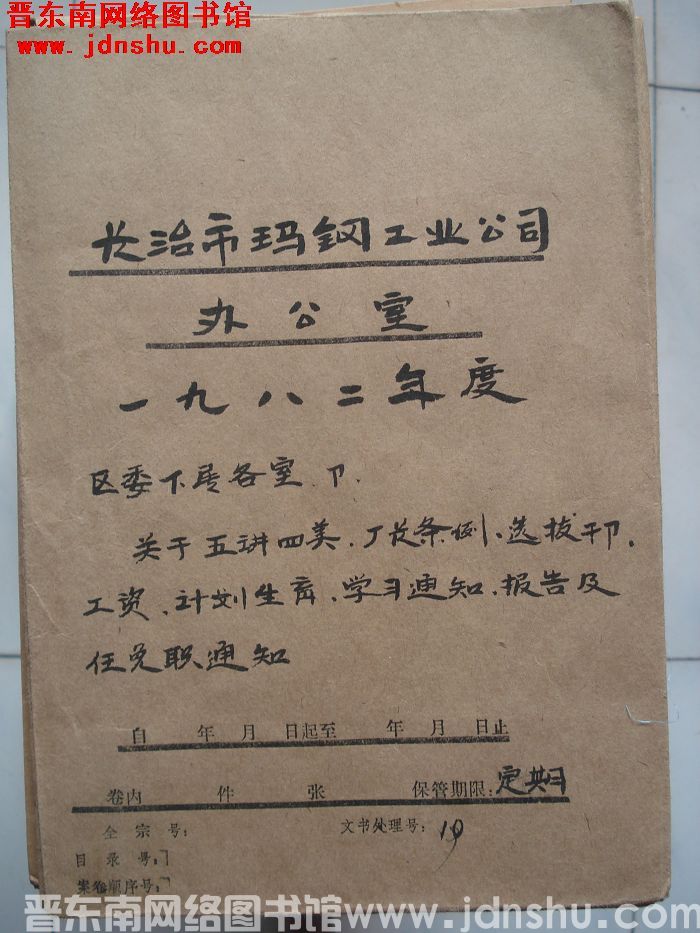 晋东南网络图书馆
www.jdnshu.com
长治市玛钢工业公司
办公室
一九八二年度
区委下属各室、卩.
关于五讲四美、厂长条例、选拔干卩、
工资、计划生育、学习通知、报告及
任免职通知
自 年 月 日起至 年 月 日止
卷内 件 张 保管期限:定期
全宗号: 文书处理号:19
目录号:
案卷顺序号:
晋东南网络图书馆 www.jdnshu.com